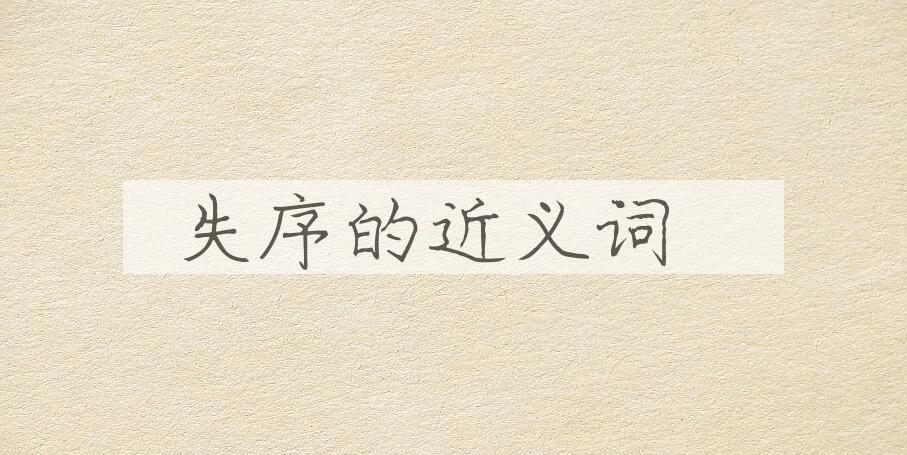 失序的近义词